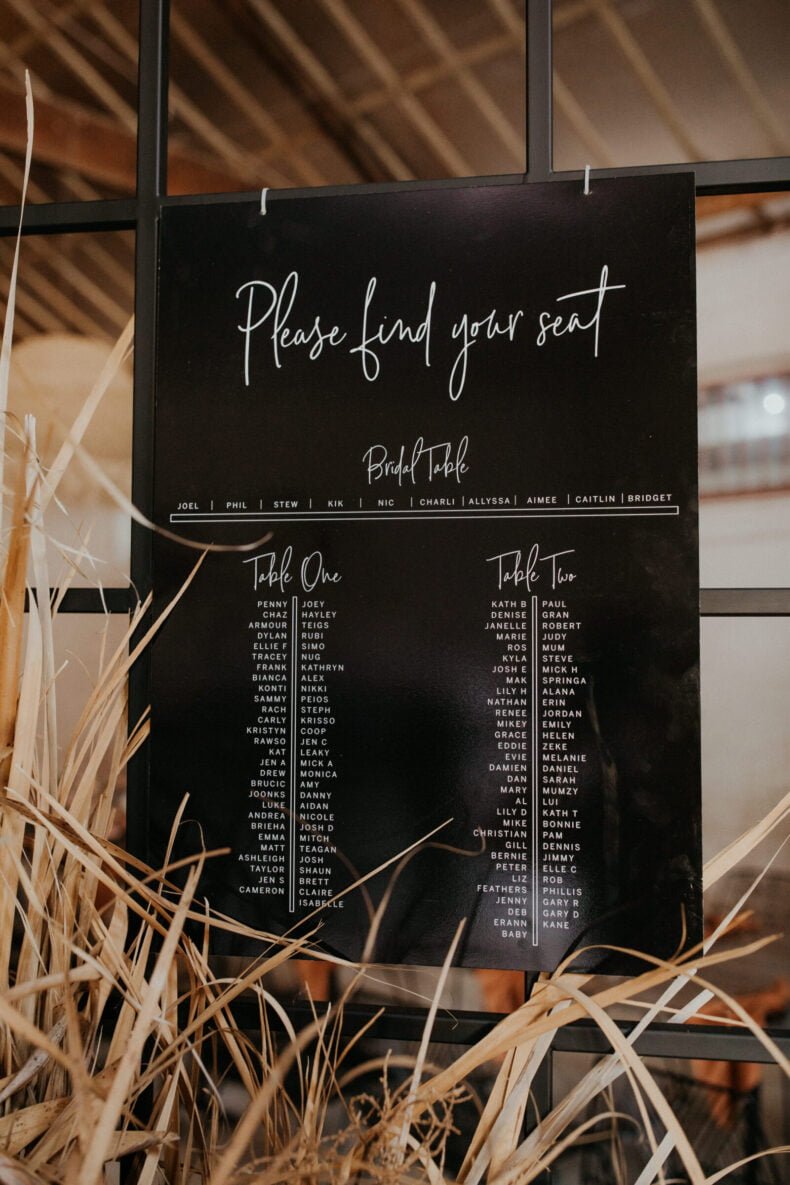 Please find your seat
Bridal Table
JOEL | PHIL | STEW | KIK | NIC | CHARLI | ALLYSSA | AIMEE | CAITLIN | BRIDGET
Table One
PENNY JOEY
CHAZ HAYLEY
ARMOUR TEIGS
DYLAN RUBI
ELLIE F SIMO
TRACEY NUG
FRANK KATHRYN
BIANCA ALEX
KONTI NIKKI
SAMMY PEIOS
RACH STEPH
CARLY KRISSO
KRISTYN COOP
RAWSO JEN C
KAT LEAKY
JEN A MICK A
DREW MONICA
BRUCIC AMY
JOONKS DANNY
LUKE AIDAN
ANDREA NICOLE
BRIEHA JOSH D
EMMA MITCH
MATT TEAGAN
ASHLEIGH JOSH
TAYLOR SHAUN
JEN S BRETT
CAMERON CLAIRE
ISABELLE
Table Two
KATH B PAUL
DENISE GRAN
JANELLE ROBERT
MARIE JUDY
ROS MUM
KYLA STEVE
JOSH E MICK H
MAK SPRINGA
LILY H ALANA
NATHAN ERIN
RENEE JORDAN
MIKEY EMILY
GRACE HELEN
EDDIE ZEKE
EVIE MELANIE
DAMIEN DANIEL
DAN SARAH
MARY MUMZY
AL LUI
LILY D KATH T
MIKE BONNIE
CHRISTIAN PAM
GILL DENNIS
BERNIE JIMMY
PETER ELLE C
LIZ ROB
FEATHERS PHILLIS
JENNY GARY R
DEB GARY D
ERANN KANE
BABY